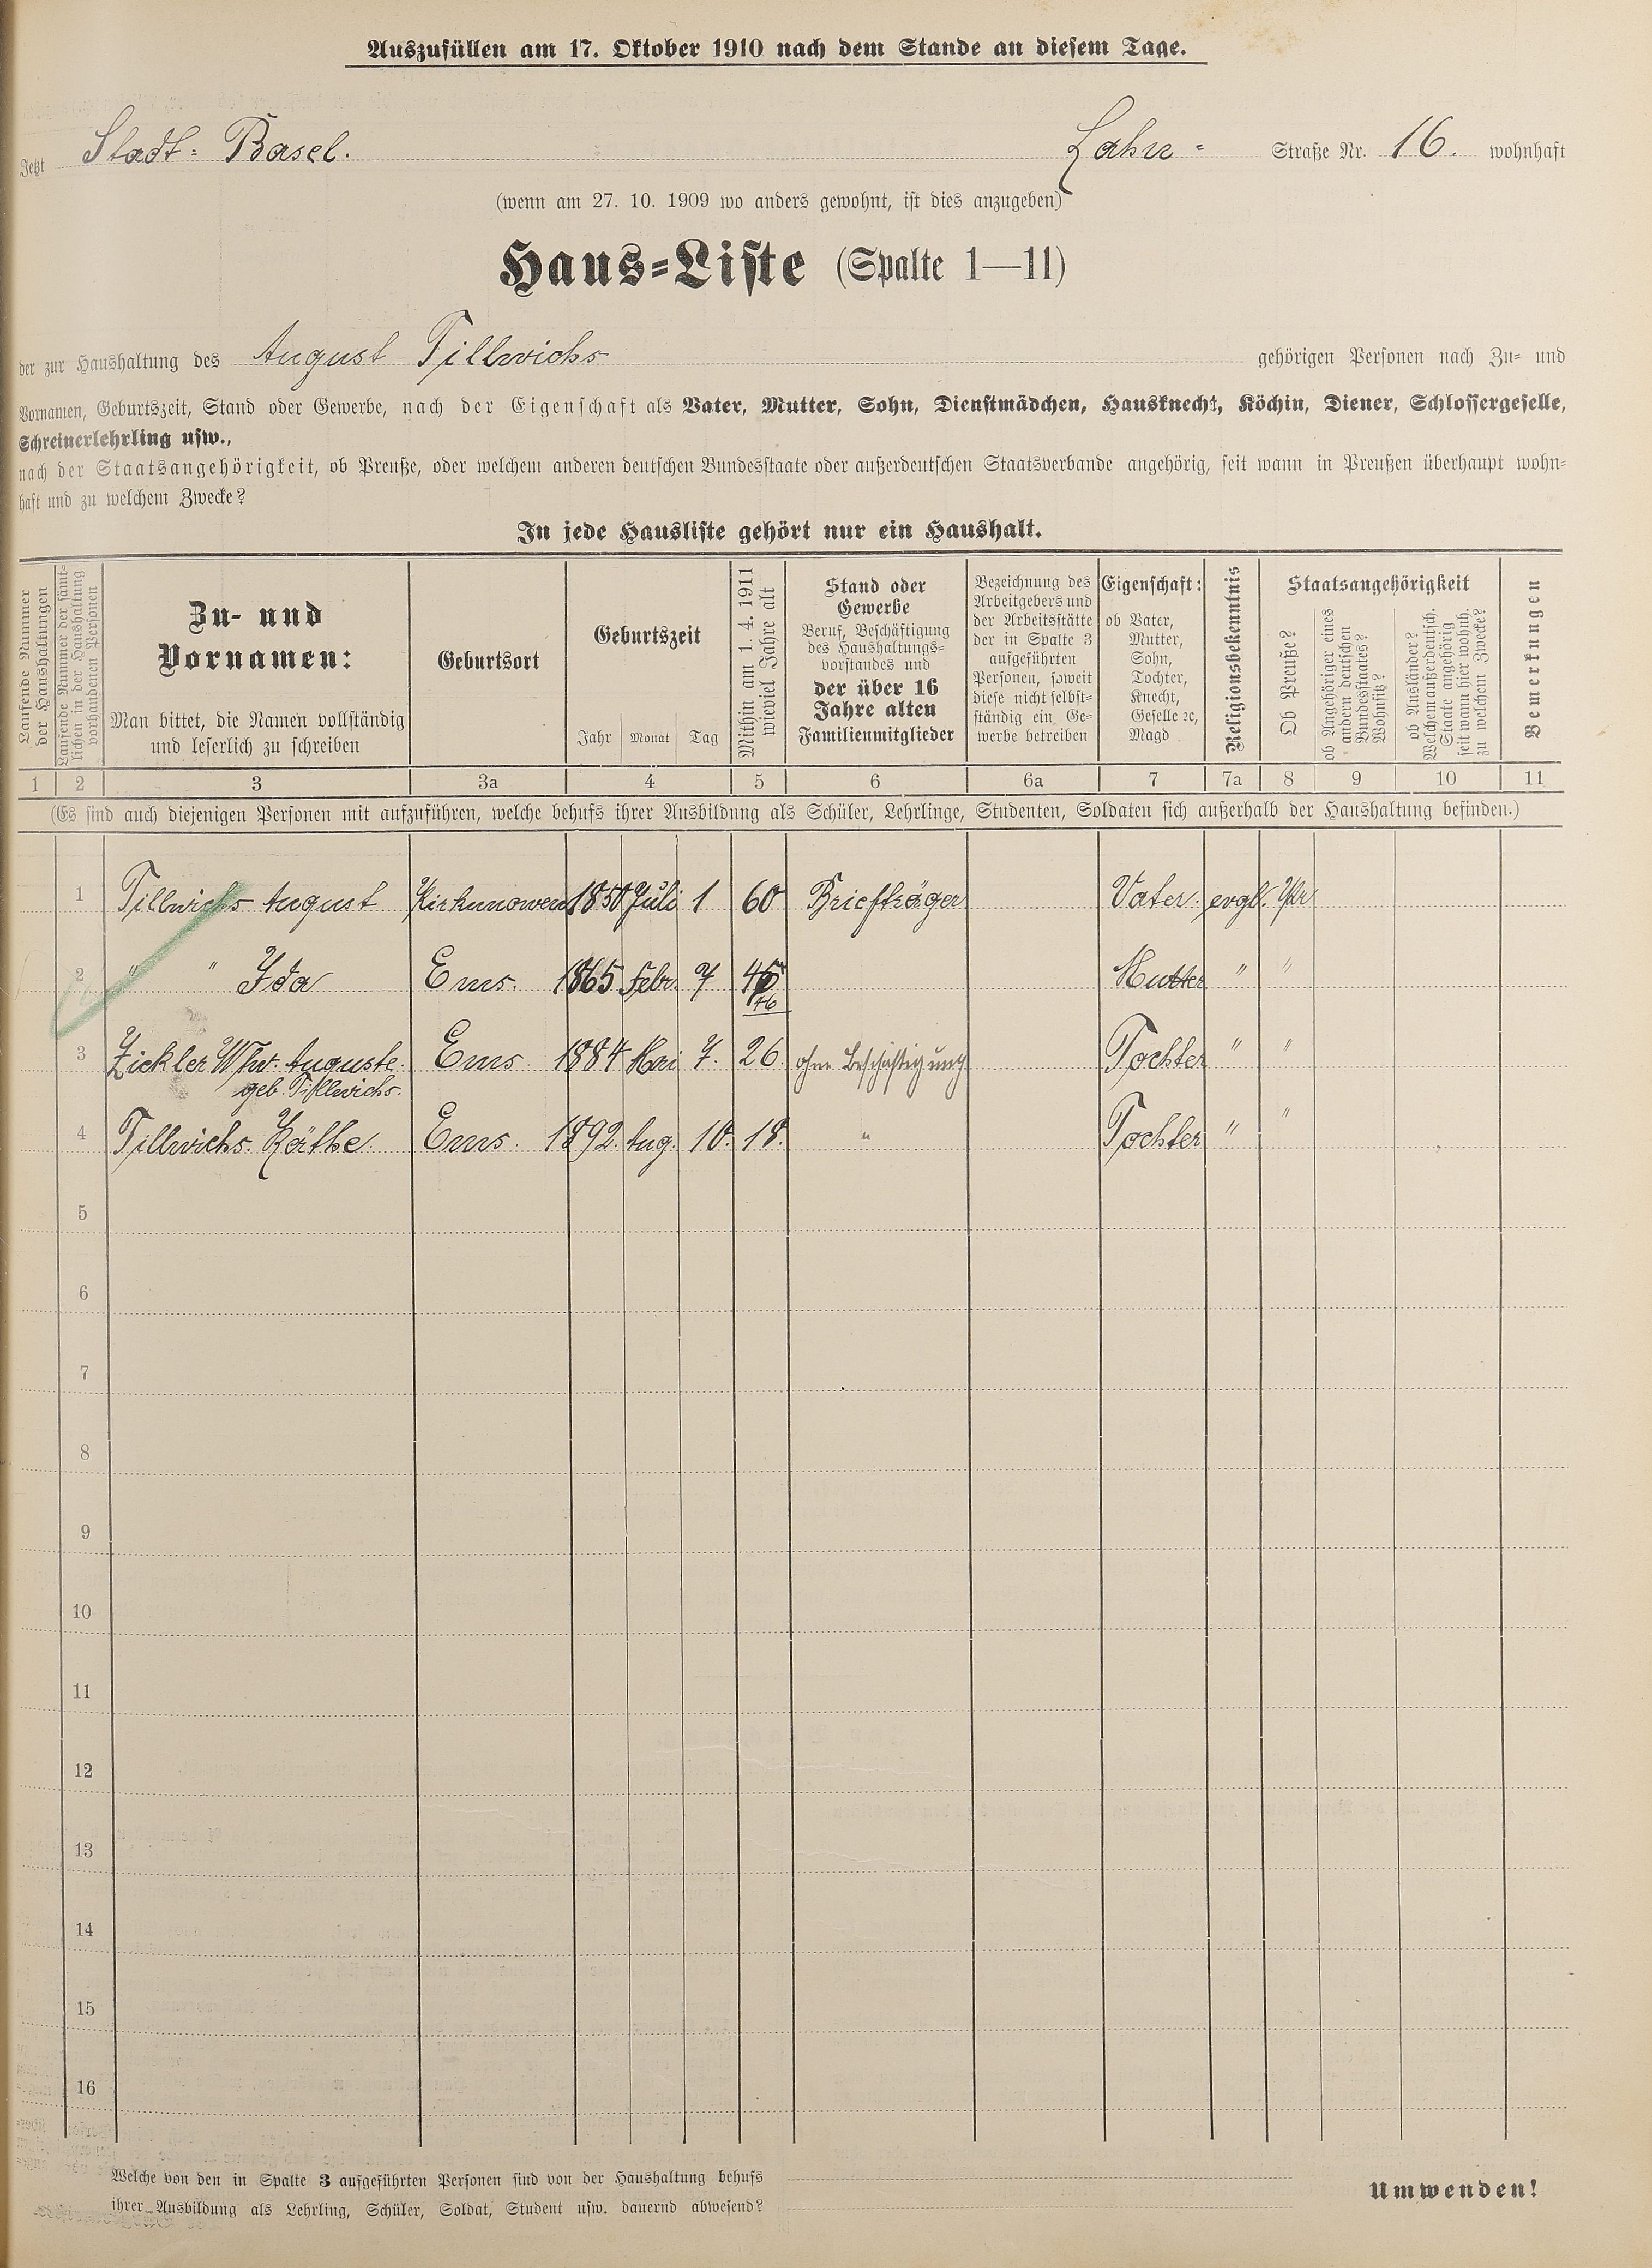 Auszufüllen am 17. Oktober 1910 nach dem Stande an diesem Tage.
Jetzt Stadt-Basel. Lahn- Straße Nr. 16. wohnhaft
(wenn am 27. 10. 1909 wo anders gewohnt, ist dies anzugeben)
Haus-Liste (Spalte 1—11)
der zur Haushaltung des August Tillwichs gehörigen Personen nach Zu- und
Vornamen, Geburtszeit, Stand oder Gewerbe, nach der Eigenschaft als Vater, Mutter, Sohn, Dienstmädchen, Hausknecht, Köchin, Diener, Schlossergeselle,
Schreinerlehrling usw.,
nach der Staatsangehörigkeit, ob Preuße, oder welchem anderen deutschen Bundesstaate oder außerdeutschen Staatsverbande angehörig, seit wann in Preußen überhaupt wohn-
haft und zu welchem Zwecke?
In jede Hausliste gehört nur ein Haushalt.
Laufende Nummer
der Haushaltungen
Laufende Nummer der sämt-
lichen in der Haushaltung
vorhandenen Personen
Zu- und
Vornamen:
Man bittet, die Namen vollständig
und leserlich zu schreiben
Geburtsort
Geburtszeit
Jahr Monat Tag
Mithin am 1. 4. 1911
wieviel Jahre alt
Stand oder
Gewerbe
Beruf, Beschäftigung
des Haushaltungs-
vorstandes und
der über 16
Jahre alten
Familienmitglieder
Bezeichnung des
Arbeitgebers und
der Arbeitsstätte
der in Spalte 3
aufgeführten
Personen, soweit
diese nicht selbst-
ständig ein Ge-
werbe betreiben
Eigenschaft:
ob Vater,
Mutter,
Sohn,
Tochter,
Knecht,
Geselle ꝛc,
Magd
Religionsbekenntnis
Staatsangehörigkeit
Ob Preuße?
ob Angehöriger eines
andern deutschen
Bundesstaates?
Wohnsitz?
ob Ausländer?
Welchem außerdeutsch.
Staate angehörig
seit wann hier wohnh.
zu welchem Zwecke?
Bemerkungen
1 2 3 3a 4 5 6 6a 7 7a 8 9 10 11
(Es sind auch diejenigen Personen mit aufzuführen, welche behufs ihrer Ausbildung als Schüler, Lehrlinge, Studenten, Soldaten sich außerhalb der Haushaltung befinden.)
1 Tillwichs August 1850 Juli 1 60 Briefträger Vater. evgl. Pr
2 " " Ida Ems. 1865 Febr. 7 46 Mutter " "
3 Zickler Wtw. Auguste. Ems 1884 Mai 7. 26. ohne Beschäftigung Tochter " "
geb. Tillwichs.
4 Tillwichs. Käthe. Ems. 1892. Aug. 10. 18. " Tochter " "
5
6
7
8
9
10
11
12
13
14
15
16
Welche von den in Spalte 3 aufgeführten Personen sind von der Haushaltung behufs
ihrer Ausbildung als Lehrling, Schüler, Soldat, Student usw. dauernd abwesend?
Umwenden!